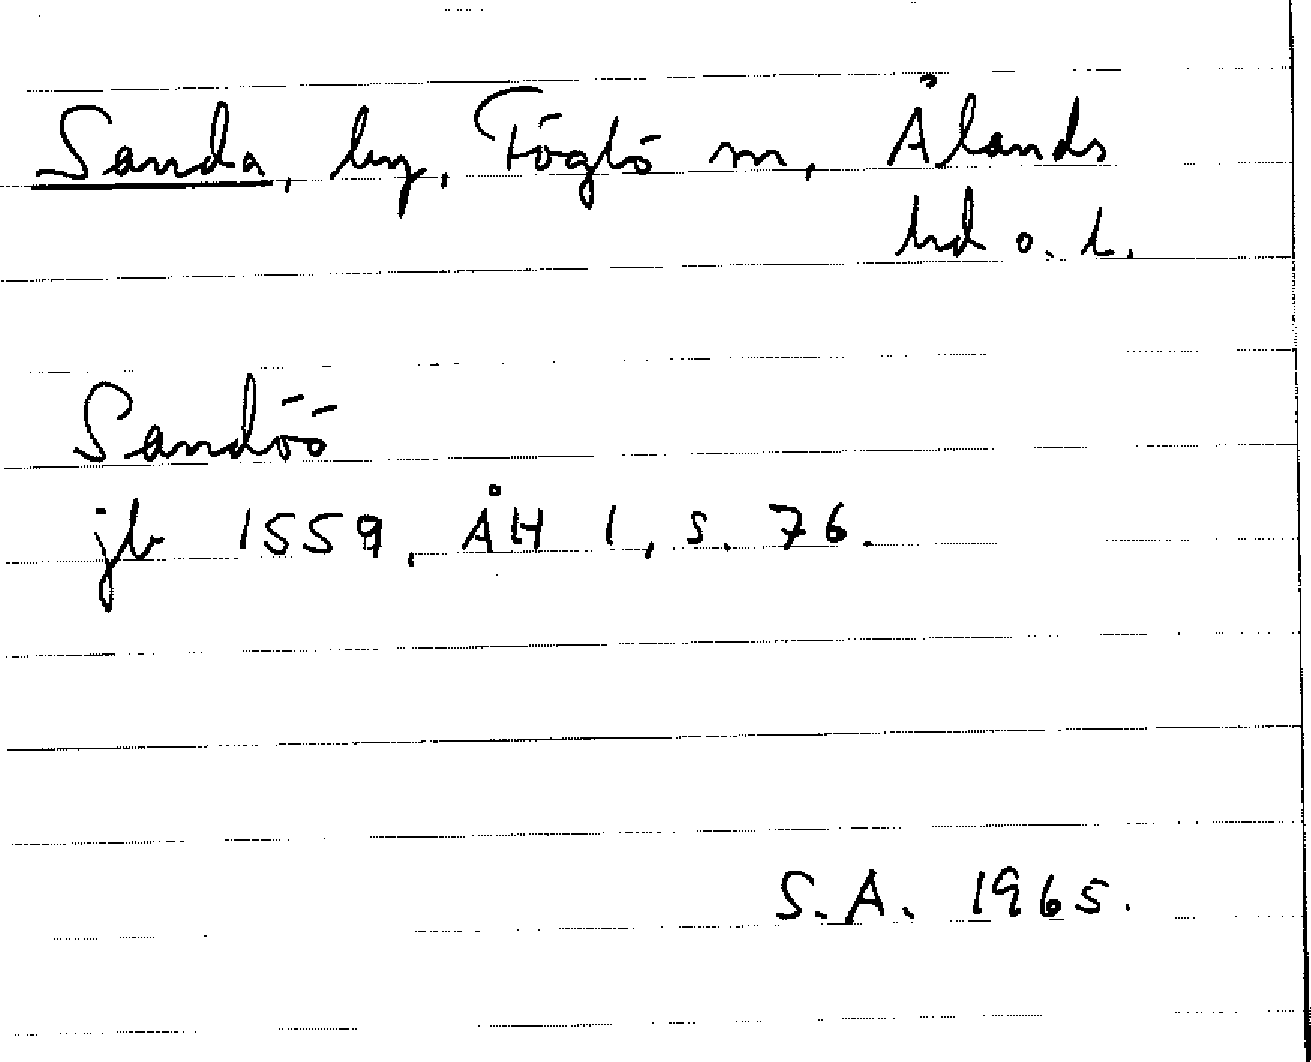 Sanda, by, Föglö sn, Ålands
hd o. l.
Sandöö
jb 1559, ÅH 1, s. 76.
S.A. 1965.